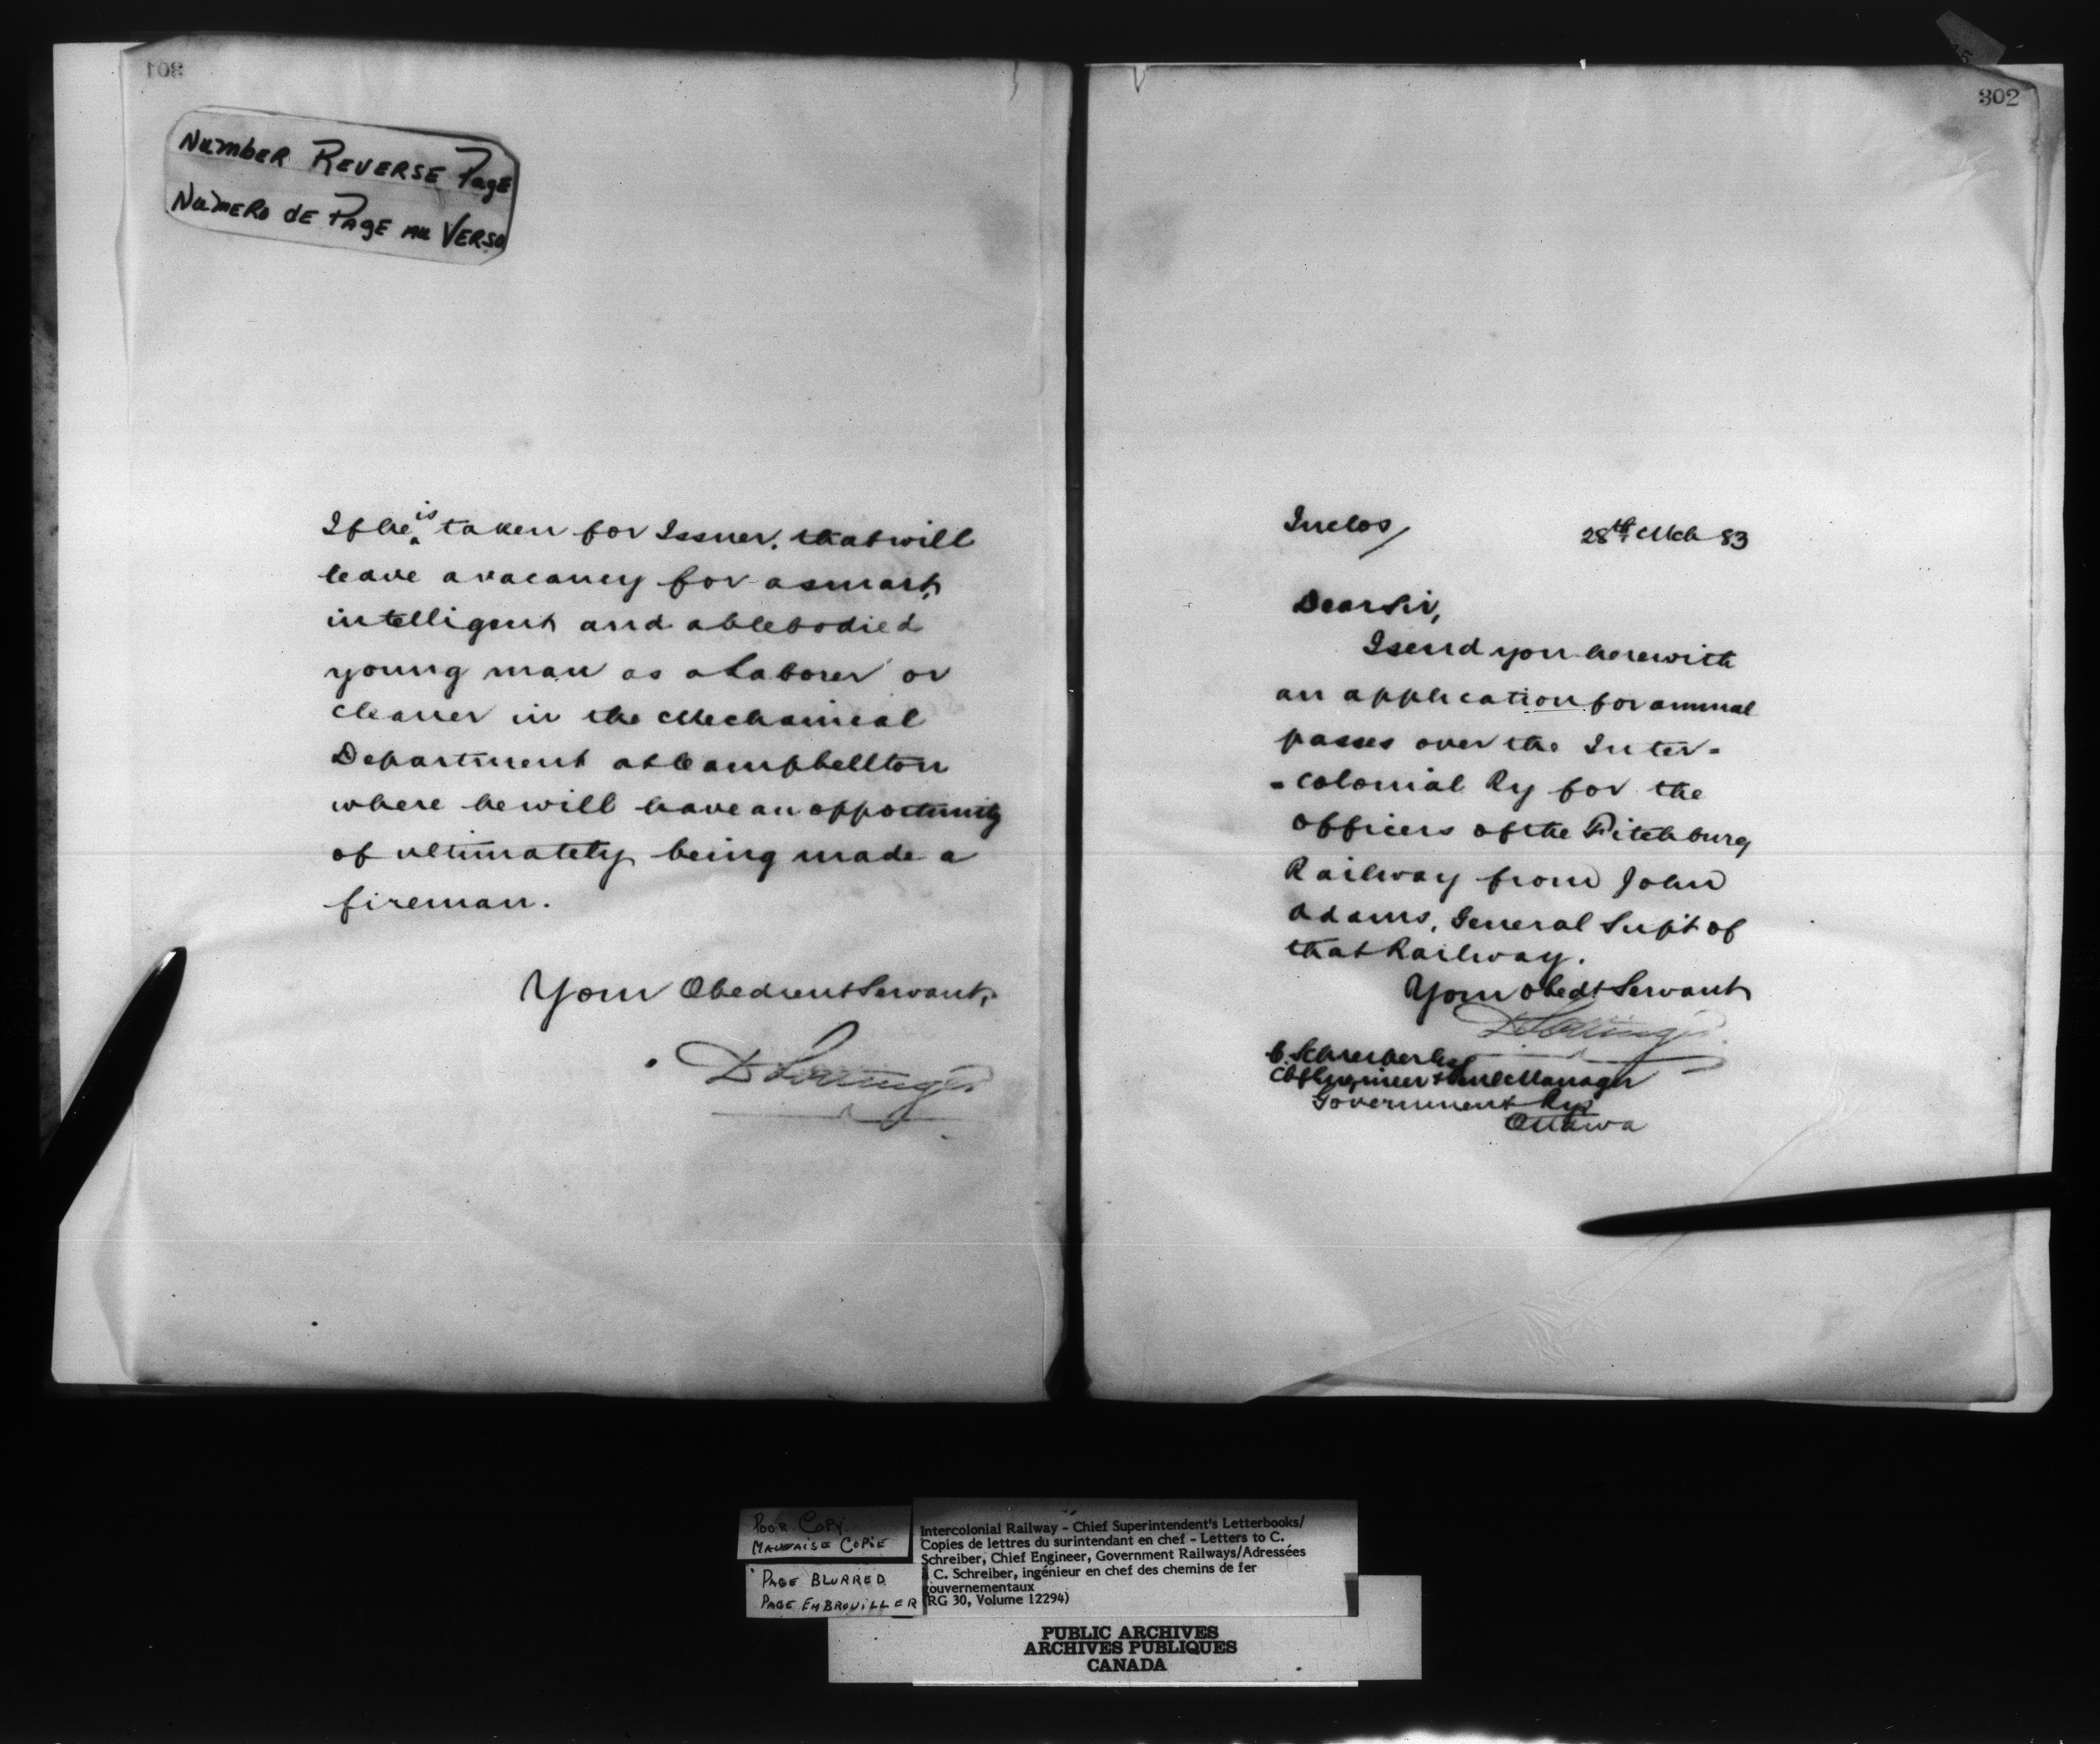 301
Number Reverse Page
Numero de Page au Verso
If he is taken for Issuer, that will
leave a vacancy for a smart,
intelligent and ablebodied
young man as a Laborer or
cleaner in the Mechanical
Department at Campbellton
where he will have an opportunity
of ultimately being made a
fireman.
Your Obedient Servant,
D Pottinger
302
Inclos/
28th Mch 83
Dear Sir,
I send you herewith
an application for annual
passes over the Inter-
-colonial Ry for the
officers of the Fitchburg
Railway from John
Adams, General Supt of
that Railway.
Your Obedt Servant
D Pottinger
C. Schreiber Esq
Chf Engineer & Genl Manager
Government Rys
Ottawa
Poor Copy
Mauvaise Copie
Page Blurred
Page Embrouiller
Intercolonial Railway - Chief Superintendent's Letterbooks/
Copies de lettres du surintendant en chef - Letters to C.
Schreiber, Chief Engineer, Government Railways/Adressées
à C. Schreiber, ingénieur en chef des chemins de fer
gouvernementaux
(RG 30, Volume 12294)
PUBLIC ARCHIVES
ARCHIVES PUBLIQUES
CANADA